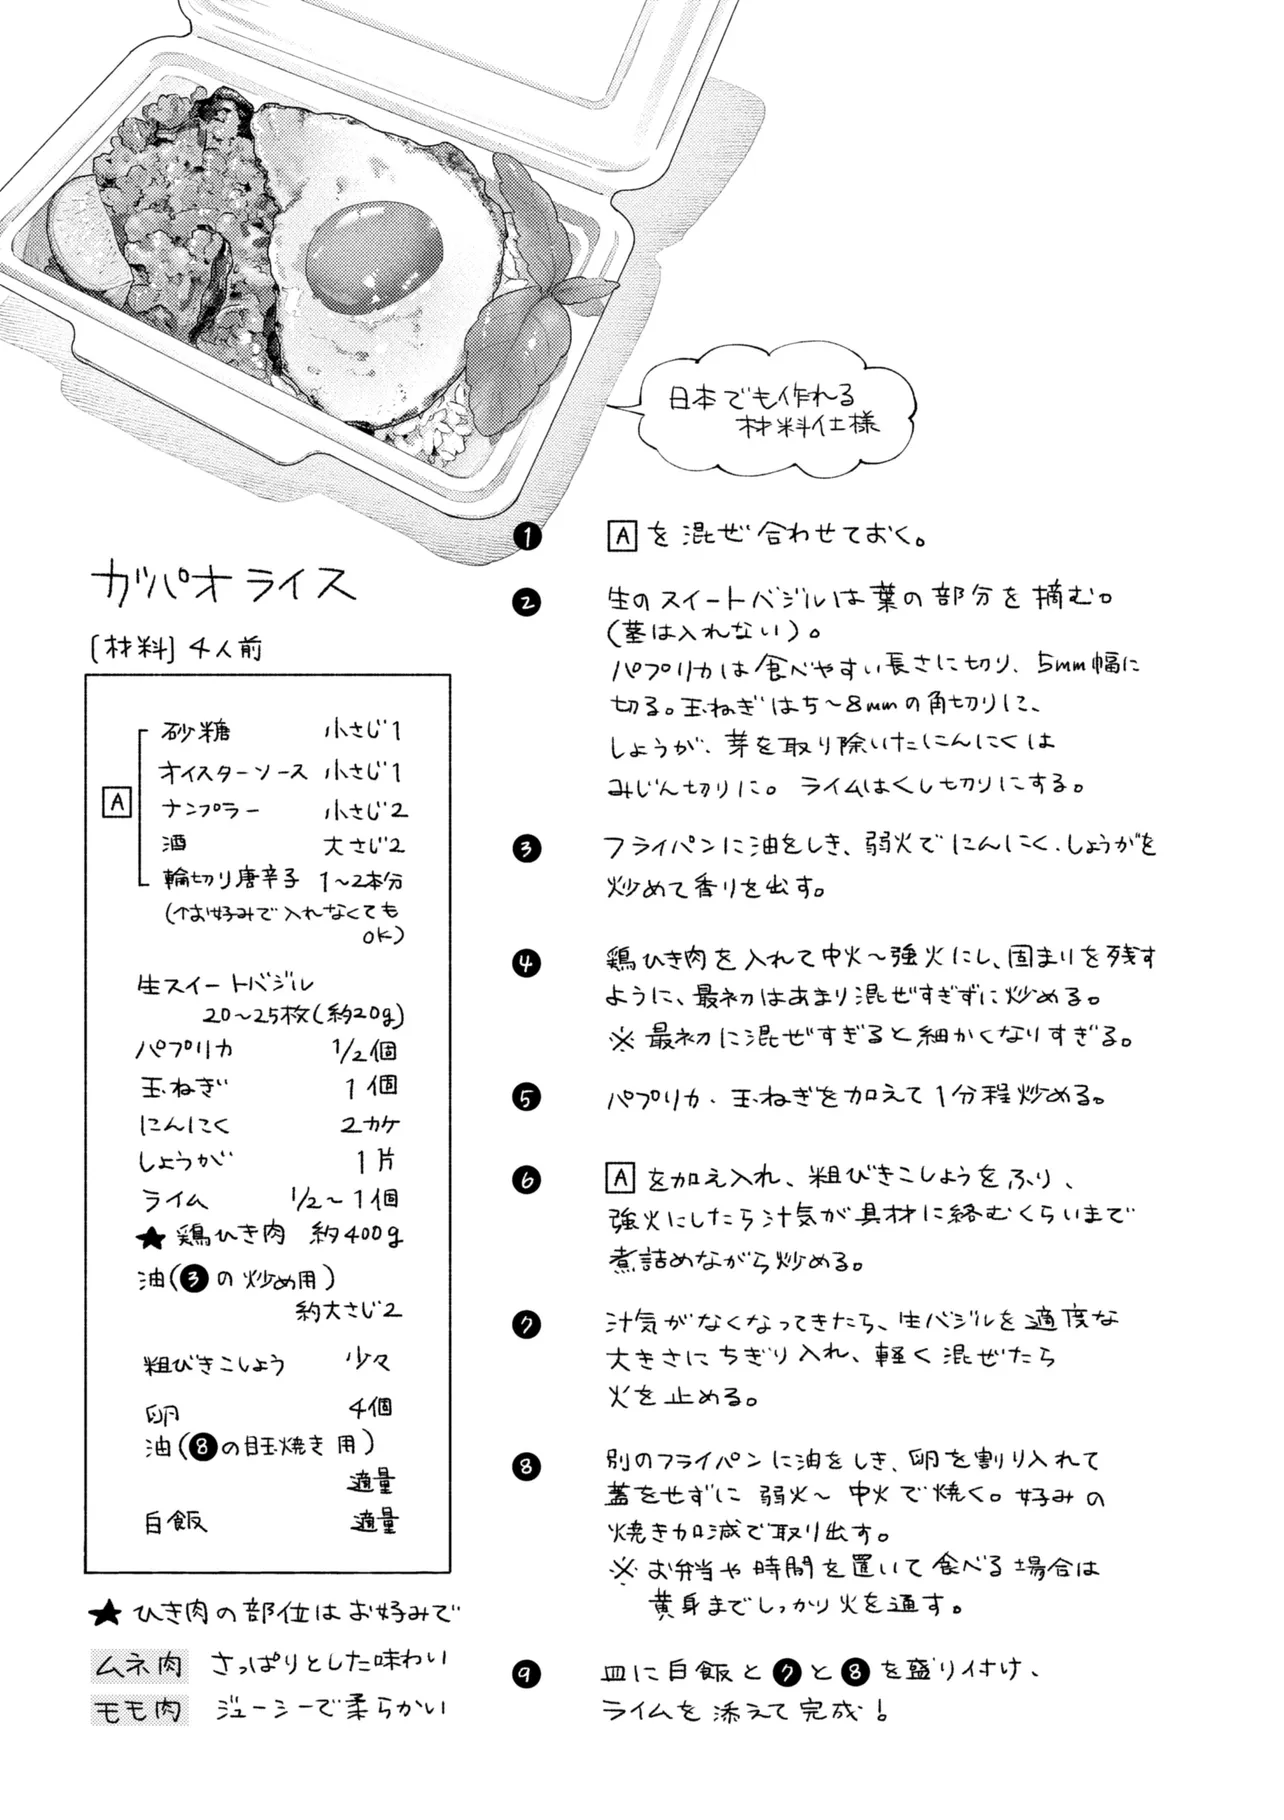 日本でも作れる
材料仕様
ガパオライス
[材料] 4人前
A
砂糖 小さじ1
オイスターソース 小さじ1
ナンプラー 小さじ2
酒 大さじ2
輪切り唐辛子 1～2本分
(↑お好みで入れなくても
OK)
生スイートバジル
20～25枚(約20g)
パプリカ 1/2個
玉ねぎ 1個
にんにく 2カケ
しょうが 1片
ライム 1/2～1個
★鶏ひき肉 約400g
油(3の炒め用)
約大さじ2
粗びきこしょう 少々
卵 4個
油(8の目玉焼き用)
適量
白飯 適量
★ひき肉の部位はお好みで
ムネ肉 さっぱりとした味わい
モモ肉 ジューシーで柔らかい
1 Aを混ぜ合わせておく。
2 生のスイートバジルは葉の部分を摘む。
(茎は入れない)。
パプリカは食べやすい長さに切り、5mm幅に
切る。玉ねぎは5～8mmの角切りに、
しょうが、芽を取り除いたにんにくは
みじん切りに。ライムはくし切りにする。
3 フライパンに油をしき、弱火でにんにく、しょうがを
炒めて香りを出す。
4 鶏ひき肉を入れて中火～強火にし、固まりを残す
ように、最初はあまり混ぜすぎずに炒める。
※最初に混ぜすぎると細かくなりすぎる。
5 パプリカ、玉ねぎを加えて1分程炒める。
6 Aを加え入れ、粗びきこしょうをふり、
強火にしたら汁気が具材に絡むくらいまで
煮詰めながら炒める。
7 汁気がなくなってきたら、生バジルを適度な
大きさにちぎり入れ、軽く混ぜたら
火を止める。
8 別のフライパンに油をしき、卵を割り入れて
蓋をせずに弱火～中火で焼く。好みの
焼き加減で取り出す。
※お弁当や時間を置いて食べる場合は
黄身までしっかり火を通す。
9 皿に白飯と7と8を盛り付け、
ライムを添えて完成!